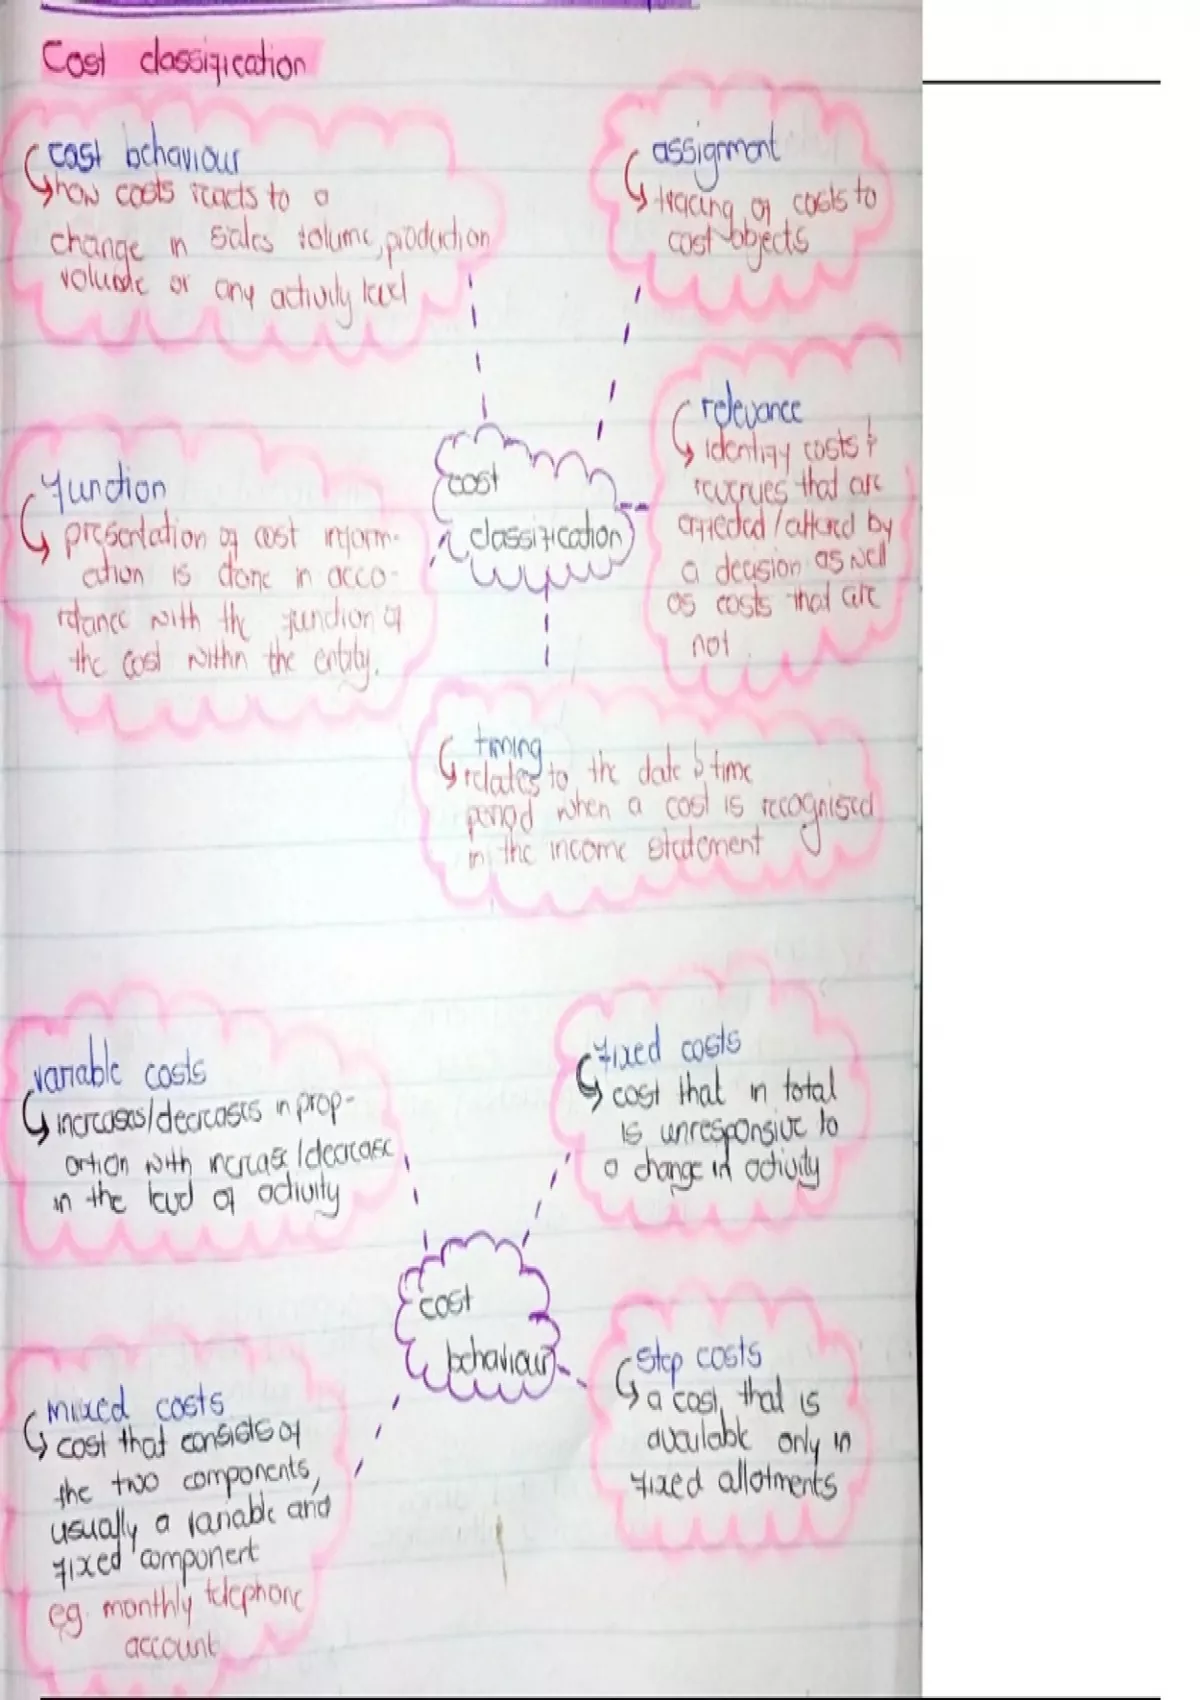 Cost classification
cost behaviour
how costs reacts to a
change in sales volume, production
volume or any activity level
assignment
tracing of costs to
cost objects
relevance
identify costs &
revenues that are
affected/altered by
a decision as well
as costs that are
not.
function
presentation of cost inform-
ation is done in acco-
rdance with the function of
the cost within the entity.
cost
classification
timing
relates to the date & time
period when a cost is recognised
in the income statement
variable costs
increases/decreases in prop-
ortion with increase/decrease
in the level of activity
fixed costs
cost that in total
is unresponsive to
a change in activity
cost
behaviour
step costs
a cost that is
available only in
fixed allotments
mixed costs
cost that consists of
the two components,
usually a variable and
fixed component
eg. monthly telephone
account